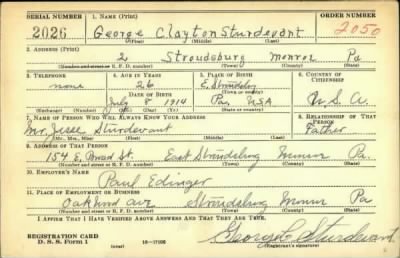 SERIAL NUMBER 1. NAME (Print) ORDER NUMBER
2026 George Clayton Sturdevant 2050
(First) (Middle) (Last)
2. ADDRESS (Print)
2 Stroudsburg Monroe Pa
(Number and street or R. F. D. number) (Town) (County) (State)
3. TELEPHONE 4. AGE IN YEARS 5. PLACE OF BIRTH 6. COUNTRY OF CITIZENSHIP
none 26 E. Stroudsburg
DATE OF BIRTH
July 8 1914 Pa, USA U. S. A.
(Exchange) (Number) (Mo.) (Day) (Yr.) (State or country)
7. NAME OF PERSON WHO WILL ALWAYS KNOW YOUR ADDRESS 8. RELATIONSHIP OF THAT PERSON
Mr. Jesse Sturdevant Father
(Mr., Mrs., Miss) (First) (Middle) (Last)
9. ADDRESS OF THAT PERSON
154 E. Broad St. East Stroudsburg Monroe Pa.
(Number and street or R. F. D. number) (Town) (County) (State)
10. EMPLOYER'S NAME
Paul Edinger
11. PLACE OF EMPLOYMENT OR BUSINESS
Oakland Ave Stroudsburg Monroe Pa
(Number and street or R. F. D. number) (Town) (County) (State)
I AFFIRM THAT I HAVE VERIFIED ABOVE ANSWERS AND THAT THEY ARE TRUE.
REGISTRATION CARD
D. S. S. Form 1 (over) 16—17105 George C Sturdevant
(Registrant's signature)